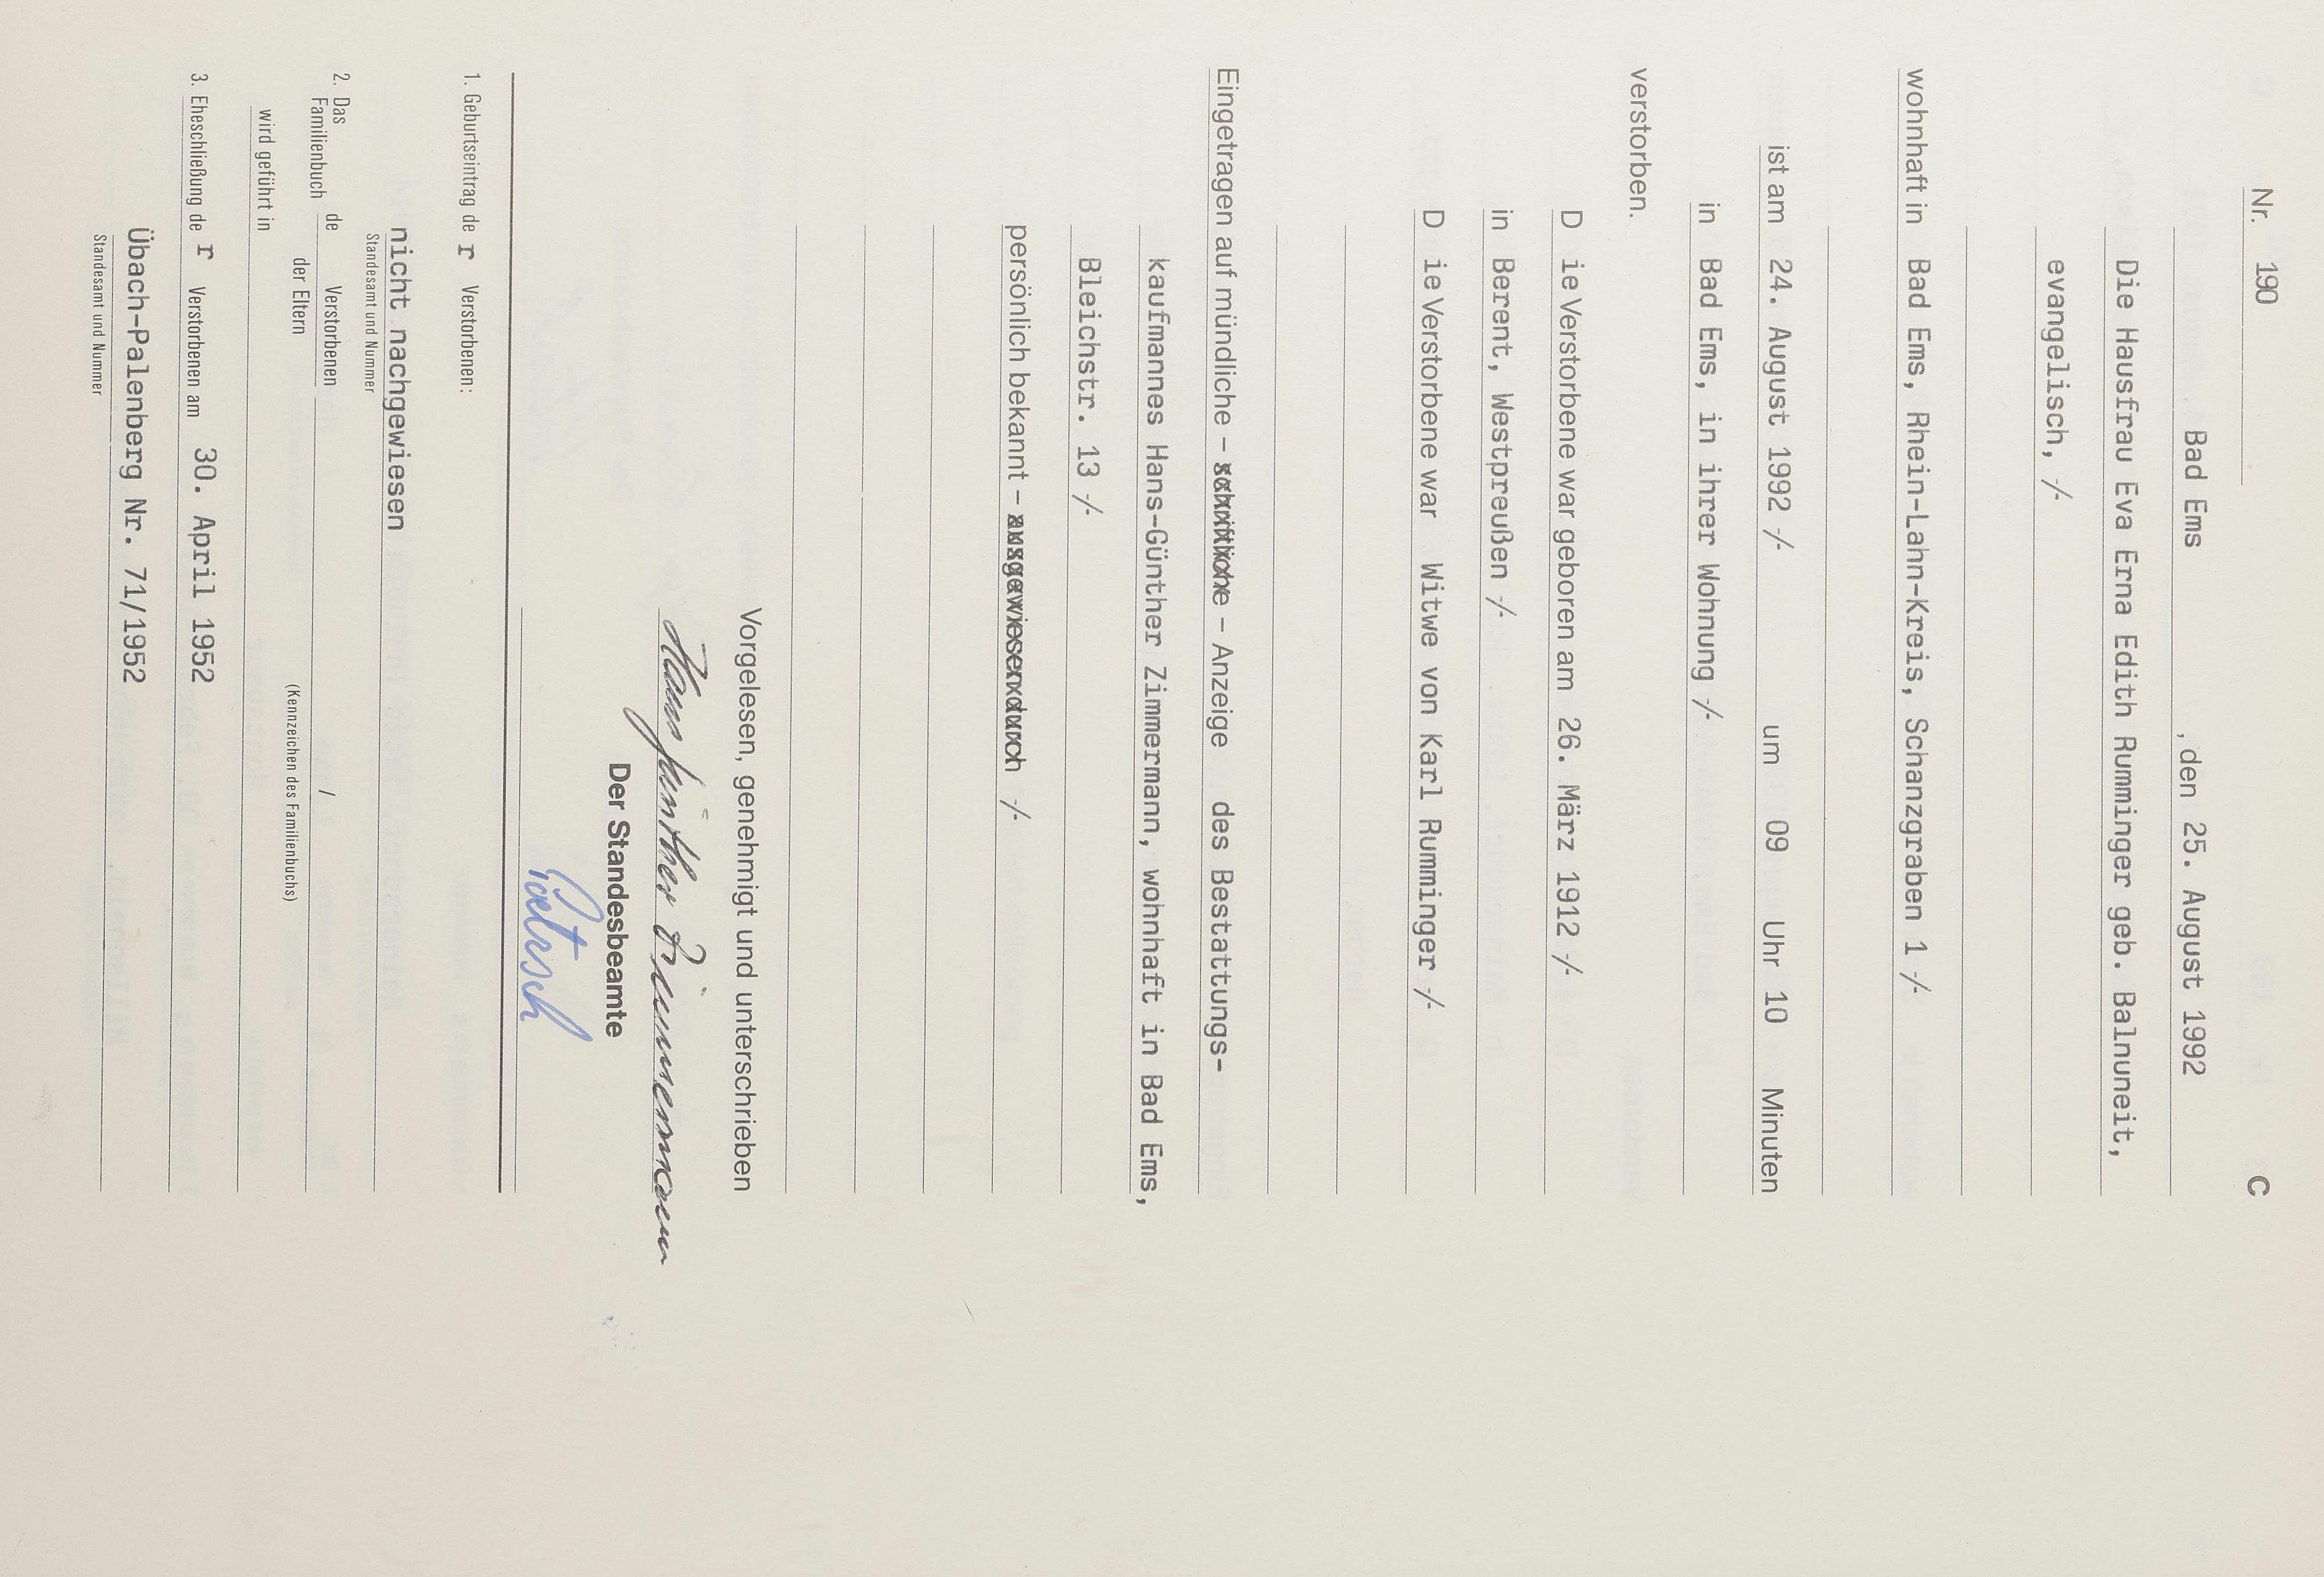 Nr. 190 C
Bad Ems, den 25. August 1992
Die Hausfrau Eva Erna Edith Rumminger geb. Balnuneit,
evangelisch, -/-
wohnhaft in Bad Ems, Rhein-Lahn-Kreis, Schanzgraben 1 -/-
ist am 24. August 1992 -/- um 09 Uhr 10 Minuten
in Bad Ems, in ihrer Wohnung -/-
verstorben.
D ie Verstorbene war geboren am 26. März 1912 -/-
in Berent, Westpreußen -/-
D ie Verstorbene war Witwe von Karl Rumminger -/-
Eingetragen auf mündliche – schriftliche – Anzeige des Bestattungs-
kaufmannes Hans-Günther Zimmermann, wohnhaft in Bad Ems,
Bleichstr. 13 -/-
persönlich bekannt – ausgewiesen durch -/-
Vorgelesen, genehmigt und unterschrieben
Hans Günther Zimmermann
Der Standesbeamte
1. Geburtseintrag de r Verstorbenen:
nicht nachgewiesen
Standesamt und Nummer
2. Das Familienbuch de Verstorbenen /
der Eltern (Kennzeichen des Familienbuchs)
wird geführt in
3. Eheschließung de r Verstorbenen am 30. April 1952
Übach-Palenberg Nr. 71/1952
Standesamt und Nummer